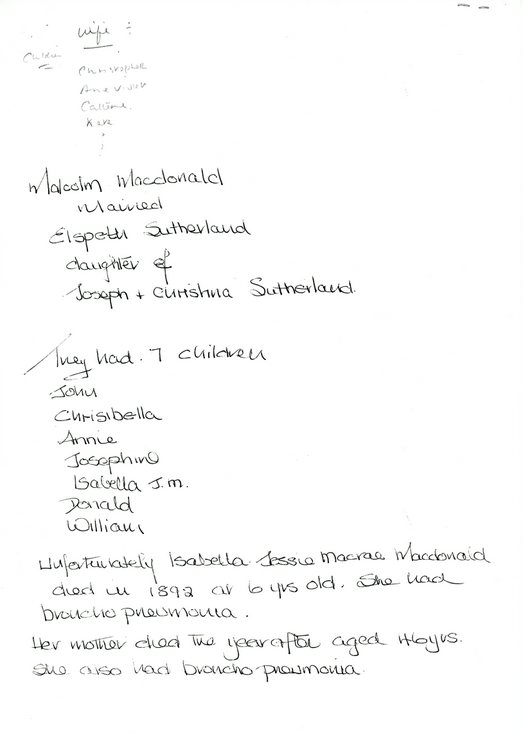 wife :
Children
Christopher
Ann Vivian
Catherine
Kate
Malcolm Macdonald
Married
Elspeth Sutherland
daughter of
Joseph + Christina Sutherland.
They had. 7 children
John
Chrisibella
Annie
Josephine
Isabella J.M.
Donald
William
Unfortunately Isabella Jessie Macrae Macdonald
died in 1892 at 6 yrs old. She had
broncho pneumonia.
Her mother died the year after aged 46yrs.
She also had broncho-pneumonia.